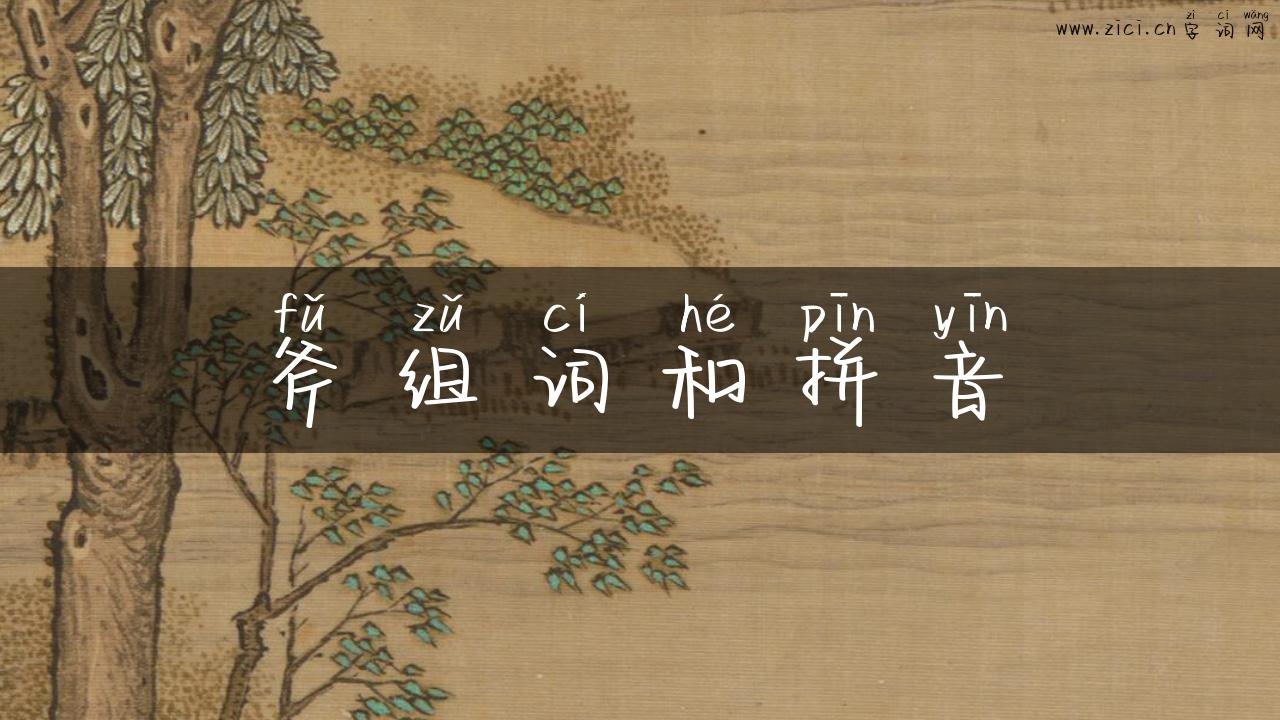 zì cí wǎng
www.zici.cn 字词网
fǔ zǔ cí hé pīn yīn
斧组词和拼音